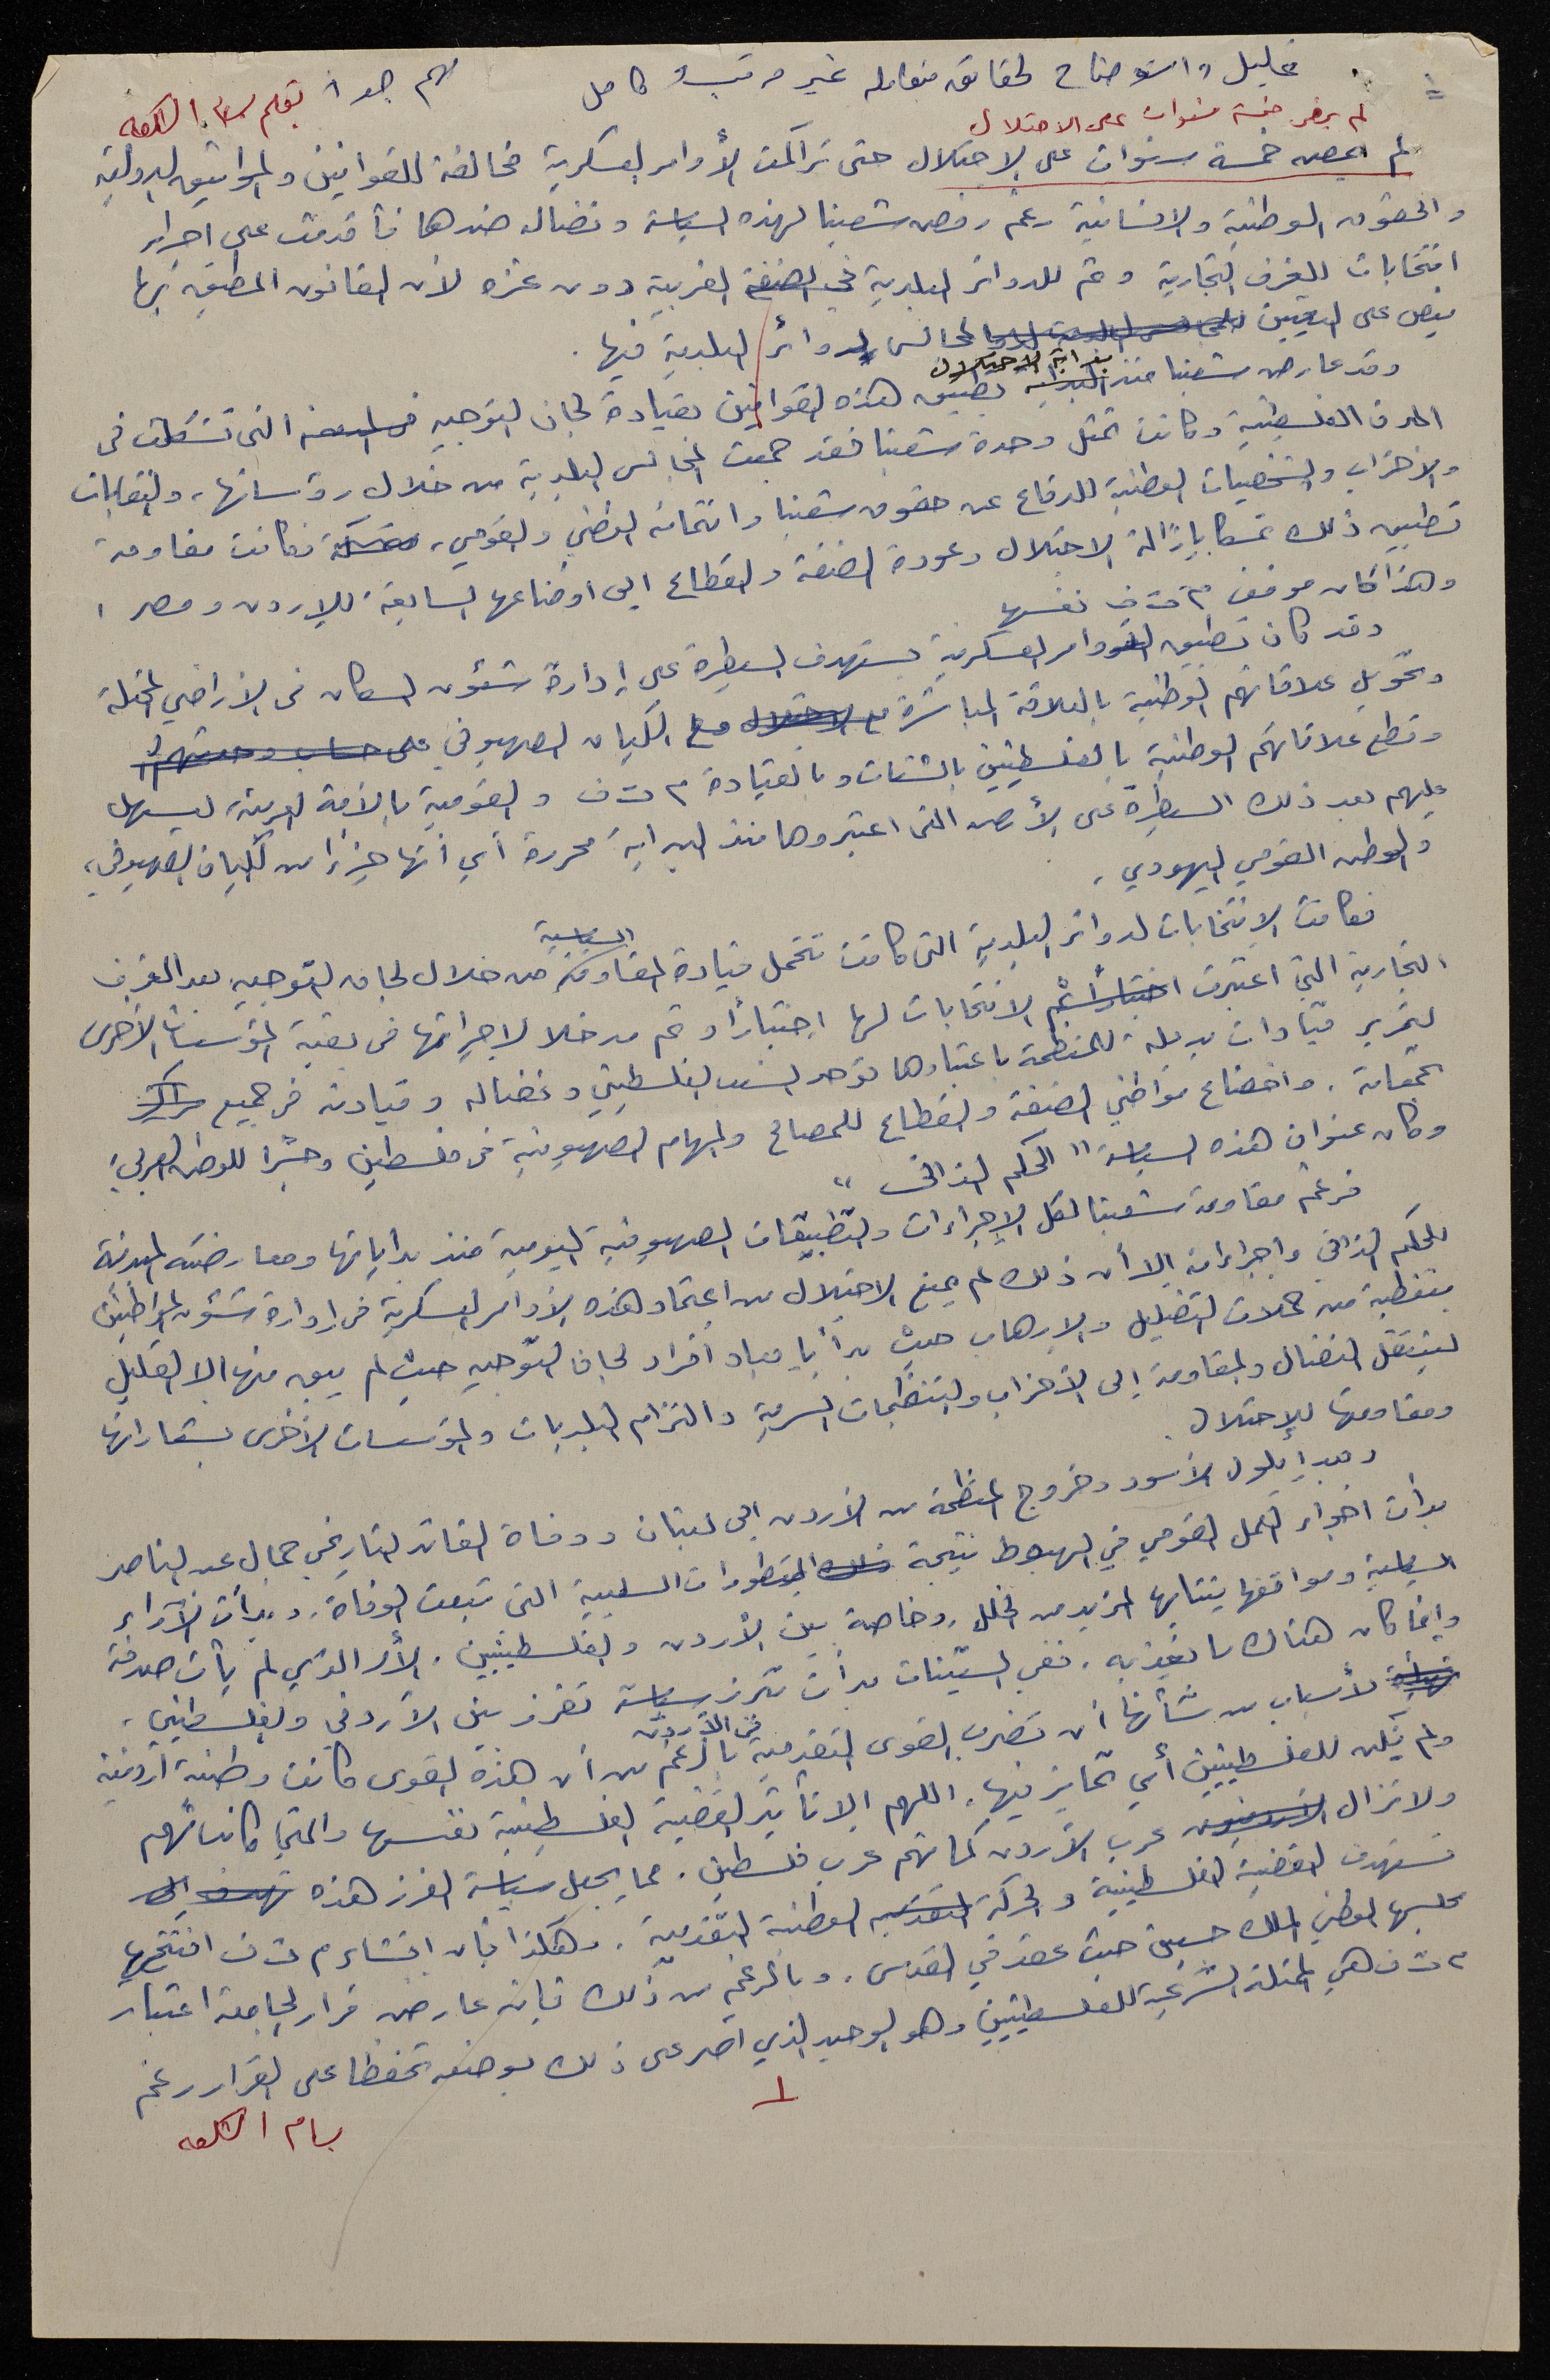 تحليل واستوضاح لحقائق متعامله غير مرتب وكامل
هم جدا بقلم بسام الشكعه
لم يمض خمسة سنوات على الاحتلال
لم يمض خمسة سنوات على الاحتلال حتى تراكمت الأوامر العسكرية مخالفة للقوانين والمواثيق الدولية
والحقوق الوطنية والانسانية رغم رفض شعبنا لهذه السياسة ونضاله ضدها فأقدمت على اجراء
انتخابات للغرف التجارية وثم للدوائر البلدية في الضفة الغربية دون غزه لأن القانون المطبق بها
ينص على التعيين لمجالس لدوائر البلدية فيها.
وقد عارض شعبنا منذ بداية الاحتلال تطبيق هذه القوانين بقيادة لجان التوجيه التي تشكلت في
المدن الفلسطينية وكانت تمثل وحدة شعبنا فقد جمعت المجالس البلدية من خلال رؤسائها، والنقابات
والاحزاب والشخصيات الوطنية للدفاع عن حقوق شعبنا وانتمائه الوطني والقومي، فكانت مقاومة
تطبيق ذلك تمسكا بإزالة الاحتلال وعودة الضفة والقطاع الى اوضاعها السابقة للاردن ومصر،
وهذا كان موقف م ت ف نفسها
وقد كان تطبيق الاوامر العسكرية يستهدف السيطرة على إدارة شئون السكان في الاراضي المحتلة
وتحويل علاقاتهم الوطنية بالعلاقة المباشرة مع الكيان الصهيوني
وقطع علاقاتهم الوطنية بالفلسطينيين بالشتات وبالقيادة م ت ف والقومية بالأمة العربية ليسهل
عليهم بعد ذلك السيطرة على الأرض التي اعتبروها منذ البداية محررة أي أنها جزءا من الكيان الصهيوني،
والوطن القومي اليهودي.
فكانت الانتخابات لدوائر البلدية التي كانت تتحمل قيادة المقاومة السياسية من خلال لجان التوجيه بعد الغرف
التجارية التي اعتبرت الانتخابات لها اختبارا وثم مدخلا لاجرائها في بقية المؤسسات الأخرى
لتمرير قيادات بديلة للمنظمة باعتبارها توحد الشعب الفلسطيني ونضاله وقيادته في جميع
تجمعاته. واخضاع مواطني الضفة والقطاع للمصالح والمهام الصهيونية في فلسطين وجسرا للوطن العربي،
وكان عنوان هذه السياسة " الحكم الذاتي "
فرغم مقاومة شعبنا لكل الاجراءات والتطبيقات الصهيونية اليومية منذ بداياتها ومعارضته المبدئية
للحكم الذاتي واجراءاته إلا أن ذلك لم يمنع الاحتلال من اعتماد هذه الأوامر العسكرية في إدارة شئون المواطنين
بتغطية من حملات التضليل والارهاب حيث بدأ بإبعاد أفراد لجان التوجيه حيث لم يبق منها الا القليل
لينتقل النضال والمقاومة إلى الأحزاب والتنظيمات السرية والتزام البلديات والمؤسسات الأخرى بشعاراتها
ومقاومتها للاحتلال.
وبعد أيلول الأسود وخروج المنظمة من الأردن الى لبنان ووفاة القائد التاريخي جمال عبد الناصر
بدأت اجواء العمل القومي في الهبوط نتيجة التطورات السلبية التي تبعت الوفاة، وبدأت الآراء
السياسية ومواقفها ينتابها المزيد من الخلل، وخاصة بين الأردن والفلسطينيين. الأمر الذي لم يأت صدفة
وإنما كان هناك ما يغذيه. ففي الستينات بدأت تبرز سياسة تفرز بين الأردني والفلسطيني،
لأسباب من شأنها أن تضرب القوى التقدمية في الاردن بالرغم من أن هذه القوى كانت وطنية أردنية
ولم يكن للفلسطينيين أي تمايز فيها، اللهم إلا تأثير القضية الفلسطينية نفسها والتي كانت تهم
ولا تزال عرب الأردن كما تهم عرب فلسطين. مما يجعل سياسة الفرز هذه
تستهدف القضية الفلسطينية والحركة الوطنية التقدمية. وهكذا فان انشاء م ت ف افتتح
مجلسها الوطني الملك حسين حيث عقد في القدس. وبالرغم من ذلك فإنه عارض قرار الجامعة اعتبار
م ت ف هي الممثلة الشرعية للفلسطينيين وهو الوحيد الذي أصر على ذلك بوضعه تحفظا على القرار رغم
1
بسام الشكعه